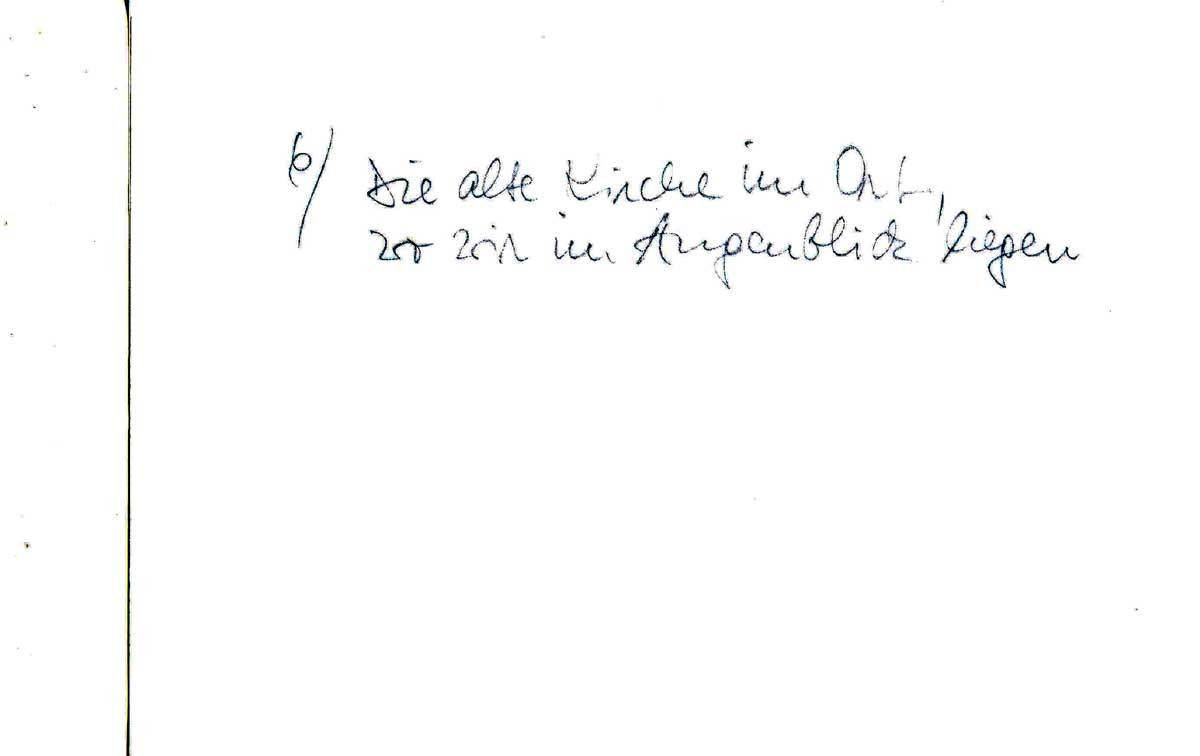 6) Die alte Kirche im Ort,
wo wir im Augenblick liegen